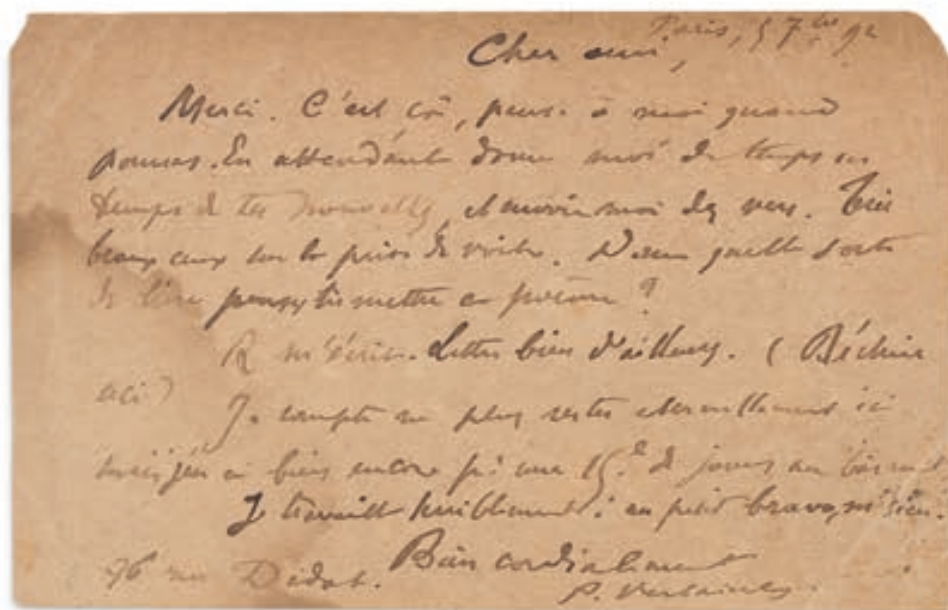 Paris, 5 7bre 92
Cher ami,
Merci. C'est ça, pense à moi quand
pourras. En attendant donne moi de temps en
temps de tes nouvelles, et envoie moi des vers. Très
beaux ceux sur la prise de voile. Dans quelle sorte
de livre penses-tu mettre ce poème ?
R m'écrit. Lettre bien d'ailleurs. (
Je compte ne plus rester éternellement ici
mais j'en ai bien encore pr une 15e de jours au
Je travaille
96 rue Didot. Bien cordialement
P. Verlaine